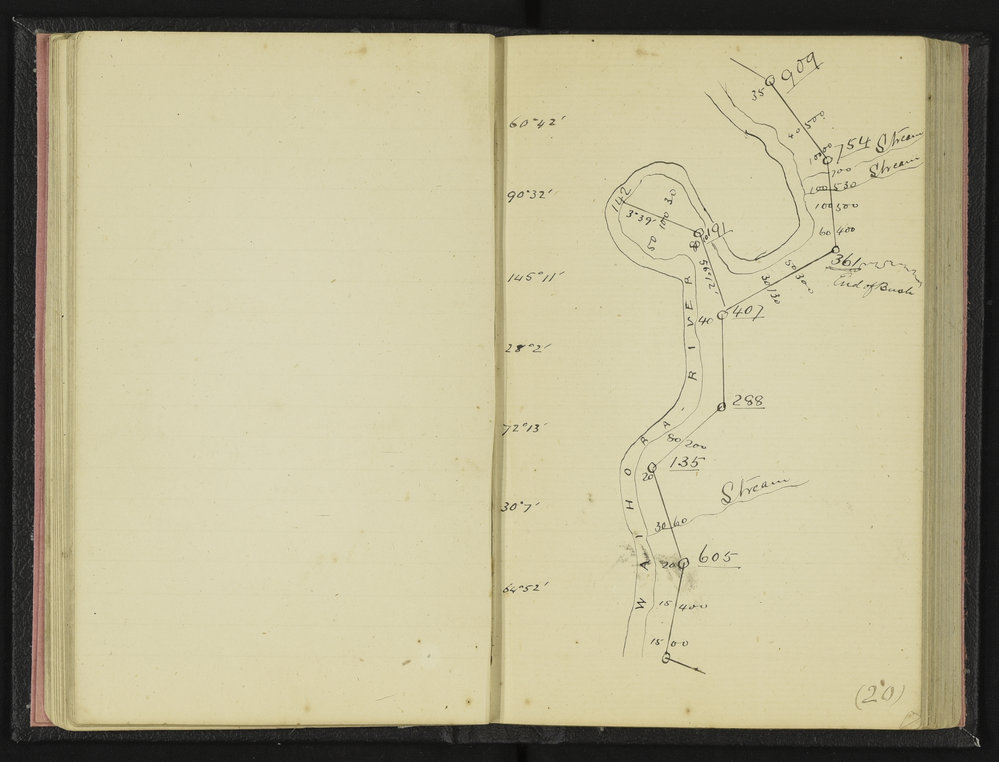 909
35
60°42'
40 500
100 000
754 Stream
700
Stream
100 530
100 500
90°32'
142
3°39'
30
100
50
191
60 400
361
End of Bush
56°12'
50 300
30 130
145°11'
40
407
28°2'
288
72°13'
80 200
20
135
Stream
30°7'
30 60
20
605
64°52'
15 400
15 00
WAIHORA - RIVER
(20)